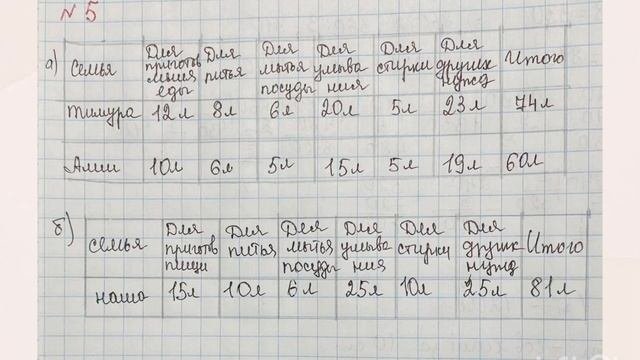 № 5
а) Семья Для приготовления еды Для питья Для мытья посуды Для умывания Для стирки Для других нужд Итого
Тимура 12л 8л 6л 20л 5л 23л 74л
Алии 10л 6л 5л 15л 5л 19л 60л
б) семья Для приготв пищи Для питья Для мытья посуды Для умывания Для стирки Для других нужд Итого
наша 15л 10л 6л 25л 10л 25л 81л